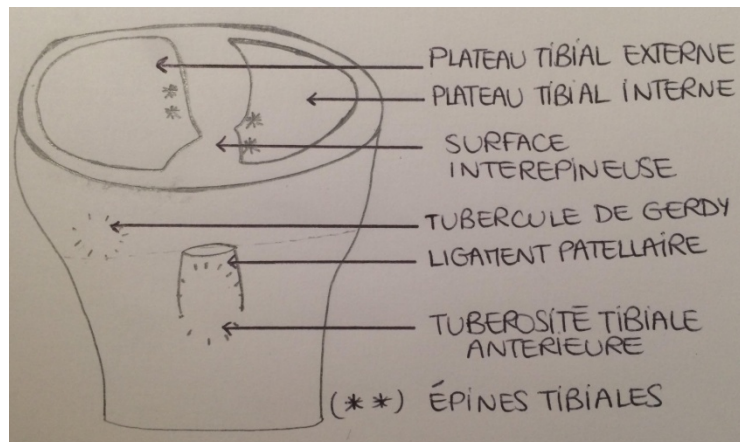 PLATEAU TIBIAL EXTERNE
PLATEAU TIBIAL INTERNE
SURFACE
INTEREPINEUSE
TUBERCULE DE GERDY
LIGAMENT PATELLAIRE
TUBEROSITÉ TIBIALE
ANTERIEURE
(**) ÉPINES TIBIALES